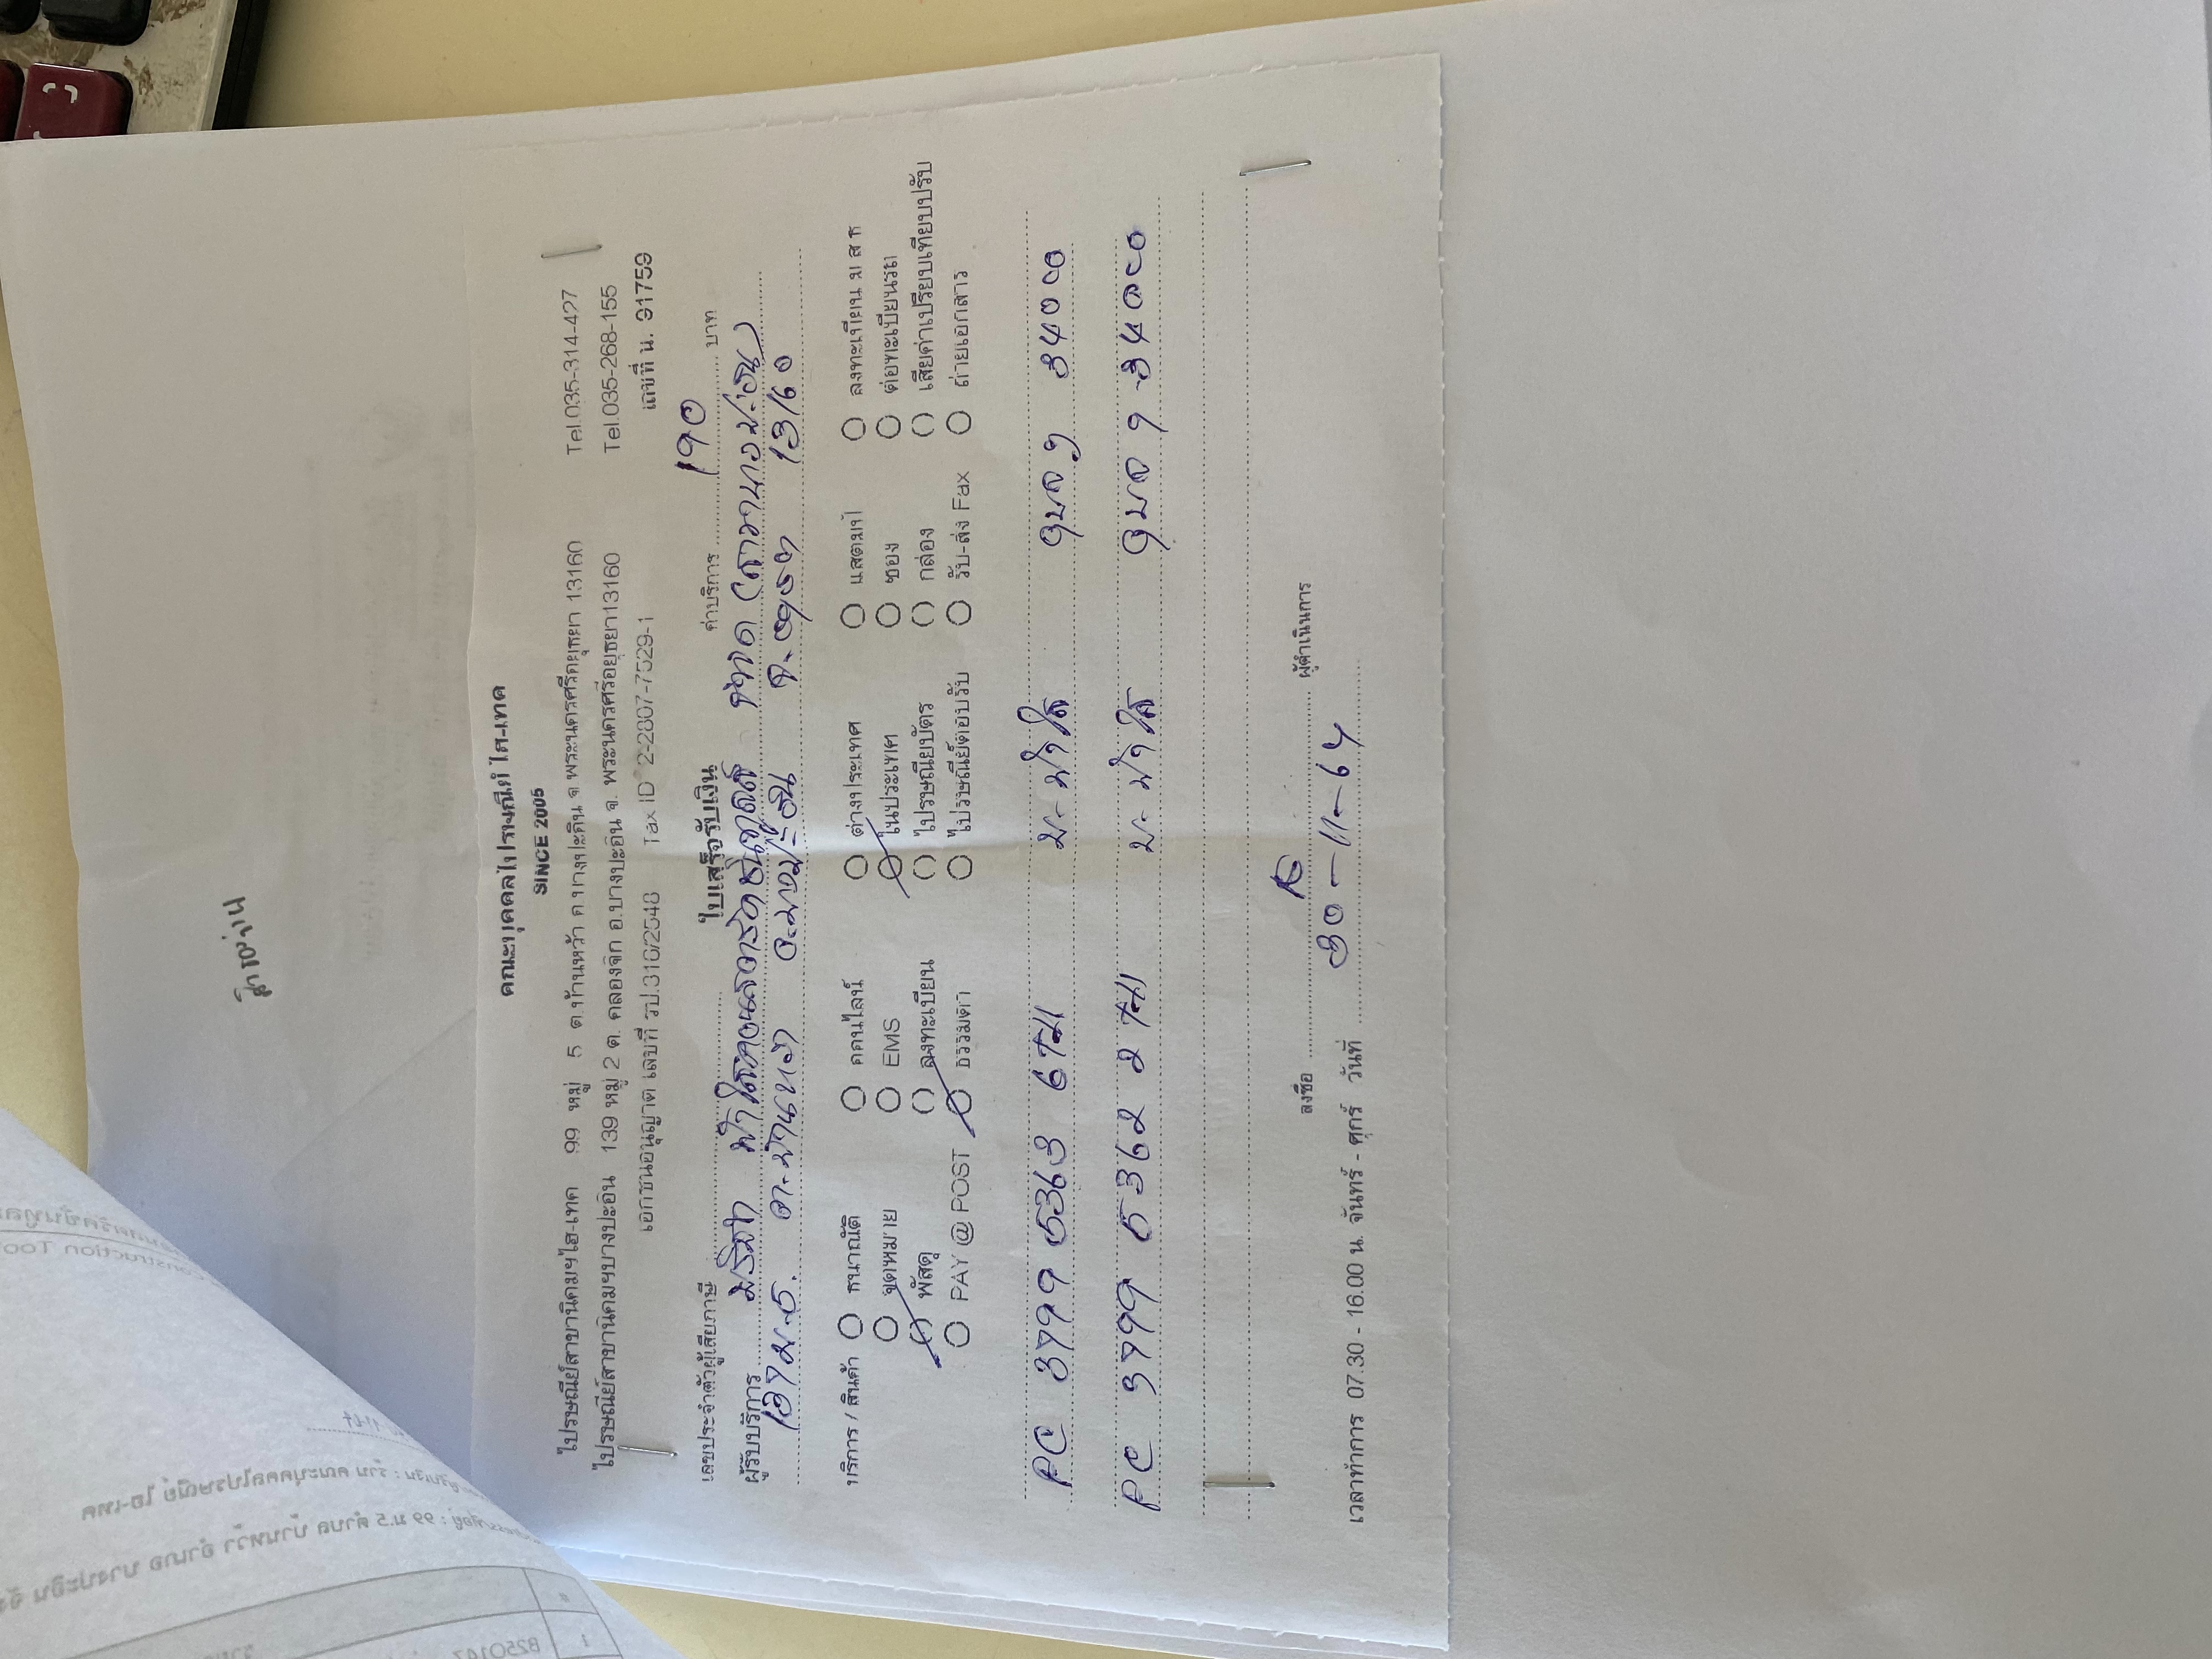 สำรองจ่าย
คณะบุคคลไปรษณีย์ ไฮ-เทค
SINCE 2005
ไปรษณีย์สาขานิคมฯไฮ-เทค 99 หมู่ 5 ต.บ้านหว้า อ.บางปะอิน จ.พระนครศรีอยุธยา 13160 Tel.035-314-427
ไปรษณีย์สาขานิคมฯบางปะอิน 139 หมู่ 2 ต. คลองจิก อ.บางปะอิน จ. พระนครศรีอยุธยา13160 Tel.035-268-155
เอกชนอนุญาต เลขที่ รป.316/2548 Tax ID 2-2807-7529-1 เลขที่ น. 91759
เลขประจำตัวผู้เสียภาษี ใบเสร็จรับเงิน ค่าบริการ 190 บาท
ผู้รับบริการ บริษัท ฟ้าใสคอนสตรัคชั่นทูลส์ จำกัด (สาขาบางปะอิน)
ม.5. ต.บ้านหว้า อ.บางปะอิน จ.อยุธยา 13160
บริการ / สินค้า ธนาณัติ ออนไลน์ ต่างประเทศ แสตมป์ ลงทะเบียน ม ส ธ
จดหมาย EMS ในประเทศ ซอง ต่อทะเบียนรถ
พัสดุ ลงทะเบียน ไปรษณียบัตร กล่อง เสียค่าเปรียบเทียบปรับ
PAY @ POST ธรรมดา ไปรษณีย์ตอบรับ รับ-ส่ง Fax ถ่ายเอกสาร
PC 3799 5363 6TH บ. ฟ้าใส อุบล ฯ 34000
PC 3799 5362 2TH บ. ฟ้าใส อุบล ฯ 34000
ลงชื่อ ผู้ดำเนินการ
เวลาทำการ 07.30 - 16.00 น. จันทร์ - ศุกร์ วันที่ 30-11-64